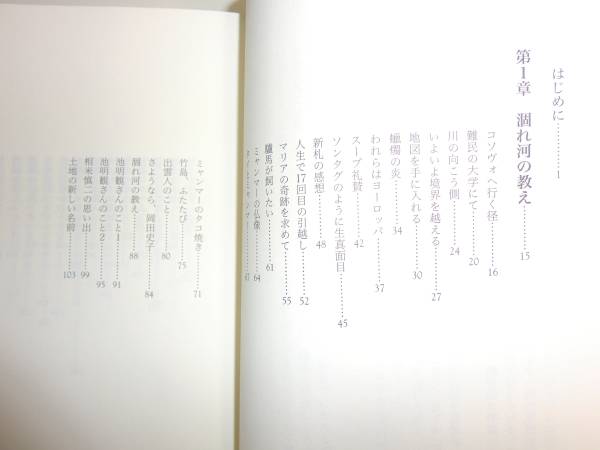 はじめに………1
第1章　涸れ河の教え………15
コソヴォへ行く径………16
難民の大学にて………20
川の向こう側………24
いよいよ境界を越える………27
地図を手に入れる………30
蠟燭の炎………34
われらはヨーロッパ………37
スープ礼賛………42
ソンタグのように生真面目………45
新札の感想………48
人生で17回目の引越し………52
マリアの奇跡を求めて………55
驢馬が飼いたい………61
ミャンマーの仏像………64
ミャンマーのタコ焼き………71
竹島、ふたたび………75
出雲人のこと………80
さようなら、岡田史子………84
涸れ河の教え………88
池明観さんのこと1………91
池明観さんのこと2………95
相米慎二の思い出………99
土地の新しい名前………103